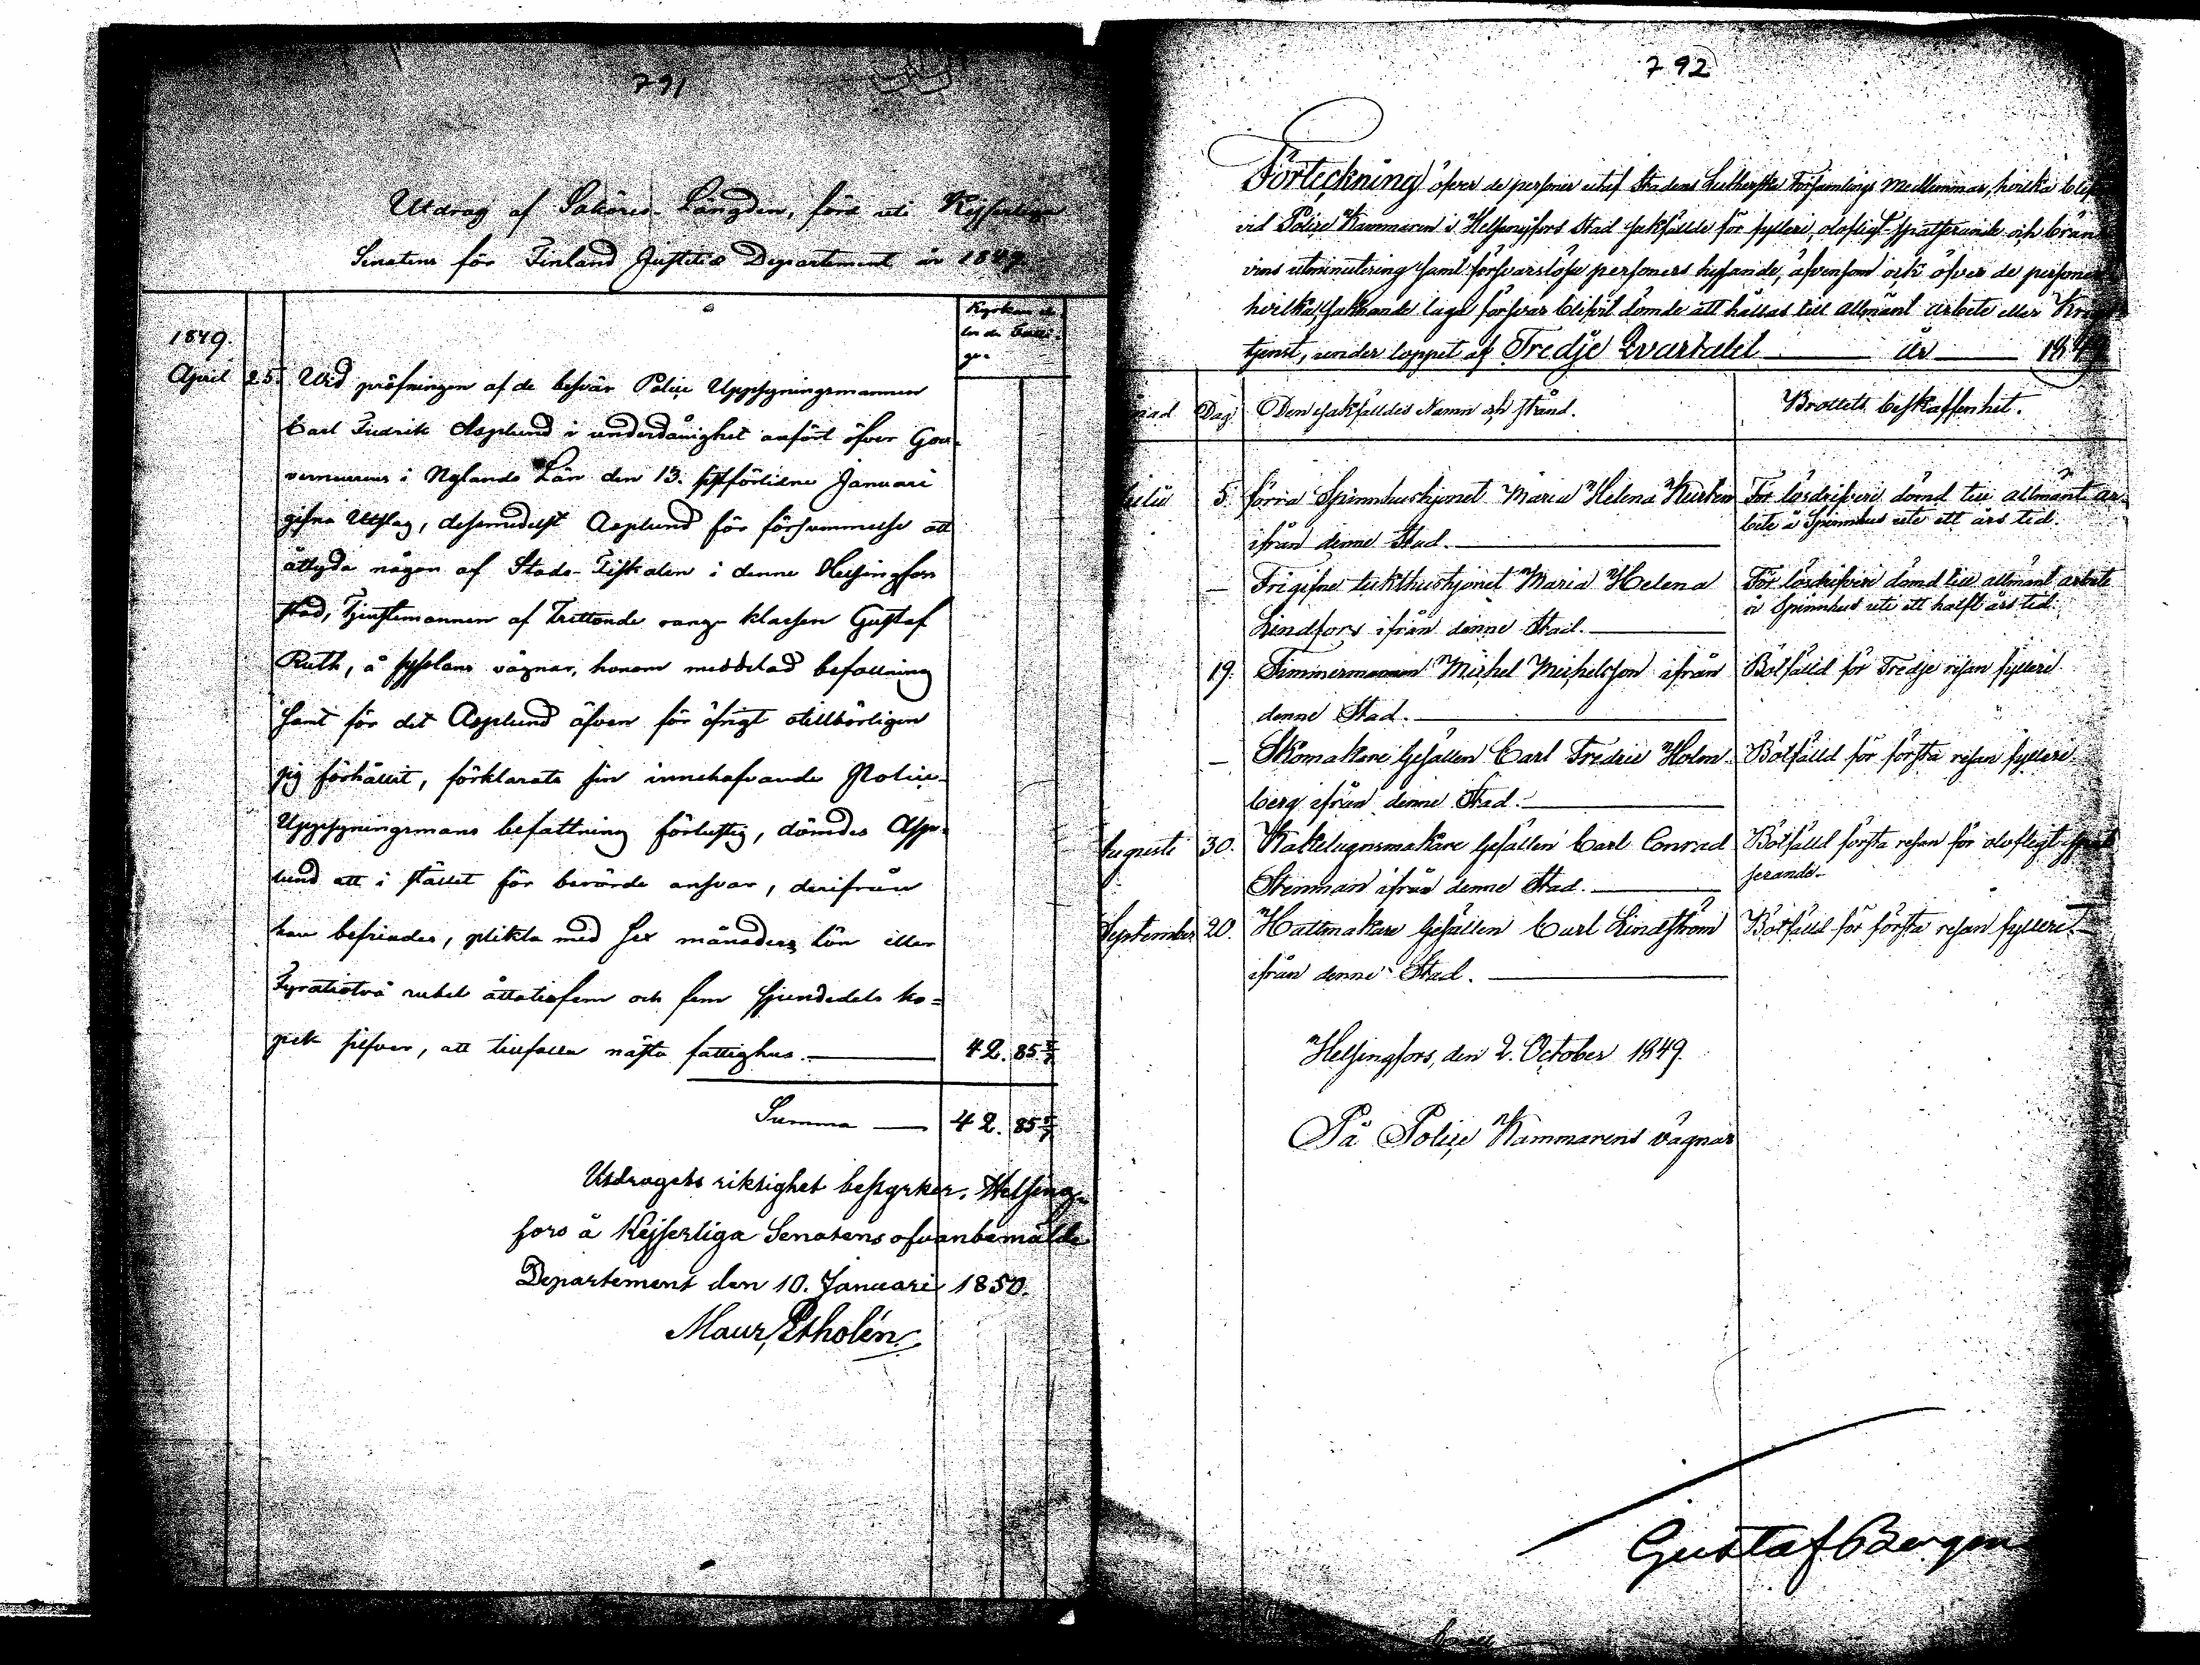 791
Utdrag af Saköres-Längden, förd uti Kejserliga
Senatens för Finland Justitiæ Departement år 1849.
Kyrkan el-
ler de Fatti-
ga.
1849.
April 25. Wid pröfningen af de besvär Police Uppsyningsmannen
Carl Fredrik Asplund i underdånighet anfört öfver Gou-
verneurens i Nylands Län den 13. sistförlidne Januari
gifna Utslag, desmedelst Asplund för försummelse att
åtlyda någon af Stads-Fiskalen i denne Helsingfors
stad, Tjenstemannen af trettonde rangs klassen Gustaf
Ruth, å sysslans vägnar, honom meddelad befallning
samt för det Asplund äfven för öfrigt otillbörligen
sig förhållit, förklarats sin innehafvande Police-
Uppsyningsmans befattning förlustig, dömdes Asp-
lund att i stället för berörde ansvar, derifrån
han befriades, plikta med sex månaders lön eller
Fyratiotvå rubel åttatiofem och fem sjundedels ko-
pek silfver, att tillfalla nästa fattighus. 42. 85 5/7
Summa 42. 85 5/7
Utdragets riktighet bestyrker, Helsing-
fors å Kejserliga Senatens ofvanbemälde
Departement den 10. Januari 1850.
Maur. Etholén.
792
Förteckning öfver de personer utaf Stadens Lutherska Församlings Medlemmar, hvilka blif
vid Police Kammaren i Helsingfors Stad sakfällde för fylleri, olofligt spatserande och brän
vins utminutering samt försvarslöse personers hysande, äfvensom ock öfver de personer
hvilka saknande laga försvar blifvit dömde att hållas till allmänt arbete eller
tjenst, under loppet af Tredje Qvartalet år 1849
nad Dag Den sakfälldes Namn och stånd. Brottets beskaffenhet.
Julii 5. förra Spinnhushjonet Maria Helena För lösdrifveri dömd till allmänt ar-
ifrån denne Stad. bete å Spinnhus uti ett års tid.
— Frigifne tukthushjonet Maria Helena För lösdrifveri dömd till allmänt arbete
Lindfors ifrån denne Stad. å Spinnhus uti ett halft års tid.
19. Timmermannen Michel Michelsson ifrån Bötfälld för Tredje resan fylleri
denne Stad.
— Skomakare Gesällen Carl Fredric Holm- Bötfälld för första resan fylleri.
berg ifrån denne Stad.
Augusti 30. Kakelugnsmakare Gesällen Carl Conrad Bötfälld första resan för olofligt spat
Stenman ifrån denne Stad. serande.
September 20. Hattmakare Gesällen Carl Lindström Bötfälld för första resan fylleri.
ifrån denne Stad.
Helsingfors, den 2. October 1849.
På Police Kammarens vägnar
Gustaf Bergen